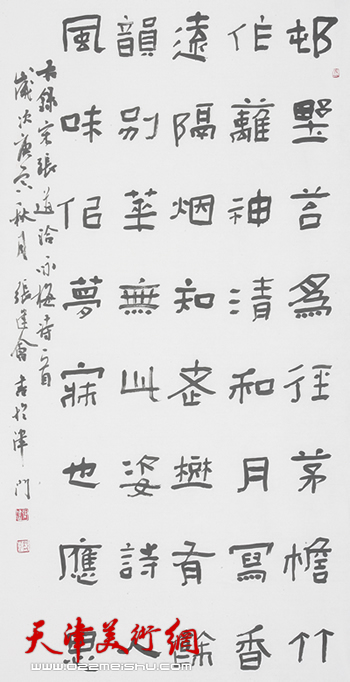 邨墅苔為徑茅檐竹
作籬神清和月寫香
遠隔烟知老樹有餘
韻別華無此姿詩人
風味佀夢寐也應思
右録宋張道洽咏梅詩一首
歲次庚秋月 張建會書於津門
天津美術網
www.022meishu.com